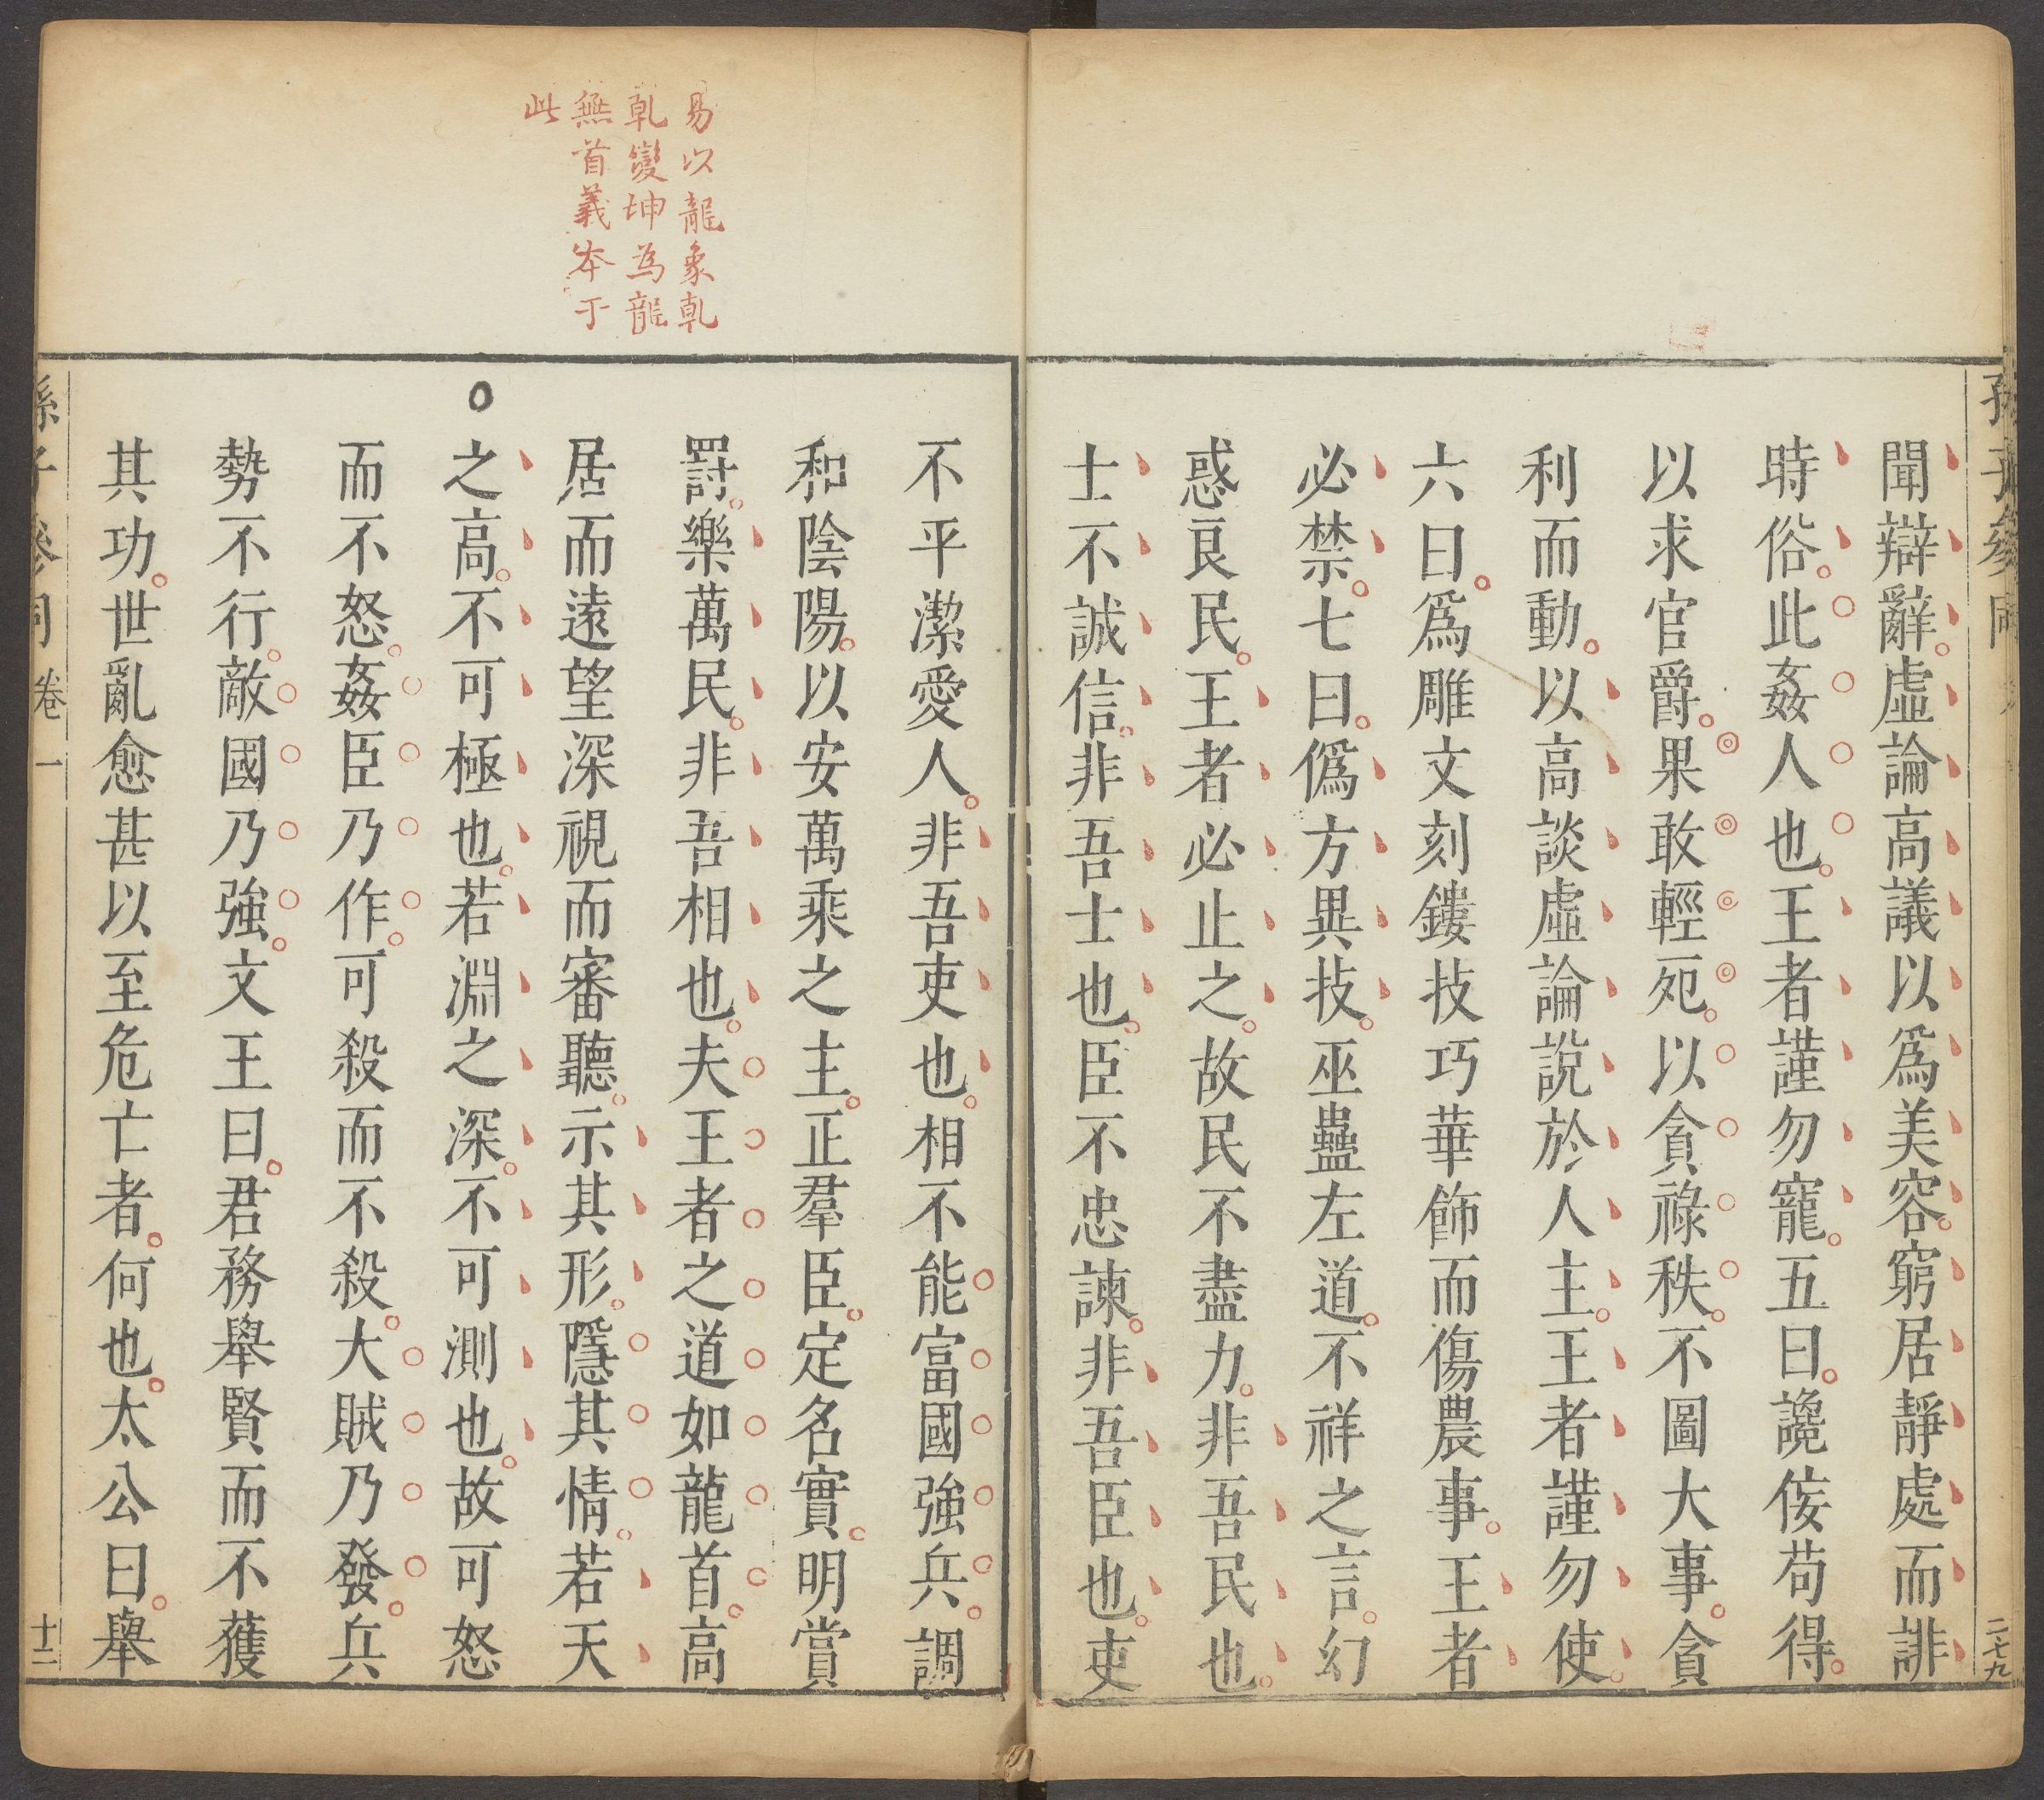 孫子參同
二七九
聞辯辭。虛論高議以爲美容。窮居靜處而誹
時俗。此姦人也。王者謹勿寵。五曰。讒佞苟得。
以求官爵。果敢輕死。以貪祿秩。不圖大事。貪
利而動。以高談虛論說於人主。王者謹勿使。
六曰。爲雕文刻鏤技巧華飾而傷農事。王者
必禁。七曰。僞方異技。巫蠱左道。不祥之言。幻
惑良民。王者必止之。故民不盡力。非吾民也。
士不誠信。非吾士也。臣不忠諫。非吾臣也。吏
易以龍象乹
乹變坤為龍
無首義本于
此
不平潔愛人。非吾吏也。相不能富國強兵。調
和陰陽。以安萬乘之主。正羣臣。定名實。明賞
罸。樂萬民。非吾相也。夫王者之道如龍首。高
居而遠望深視而審聽。示其形。隱其情。若天
之高。不可極也。若淵之深。不可測也。故可怒
而不怒。姦臣乃作。可殺而不殺。大賊乃發。兵
勢不行。敵國乃強。文王曰。君務舉賢而不獲
其功。世亂愈甚以至危亡者。何也。太公曰。舉
孫子參同 卷一
十二